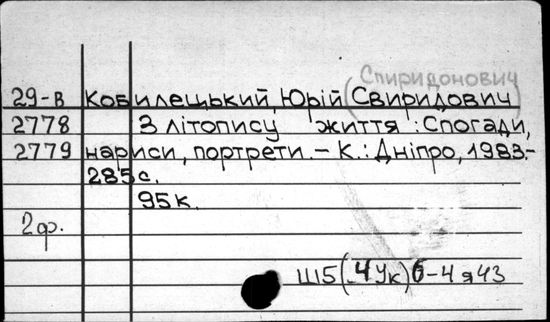 (Спиридонович
29-в Кобилецький, Юрій Свиридович
2778 З літопису життя : Спогади,
2779 нариси, портрети. – К.: Дніпро, 1983.-
285 с.
95к.
2ф.
Ш5(4Ук)6-4я43